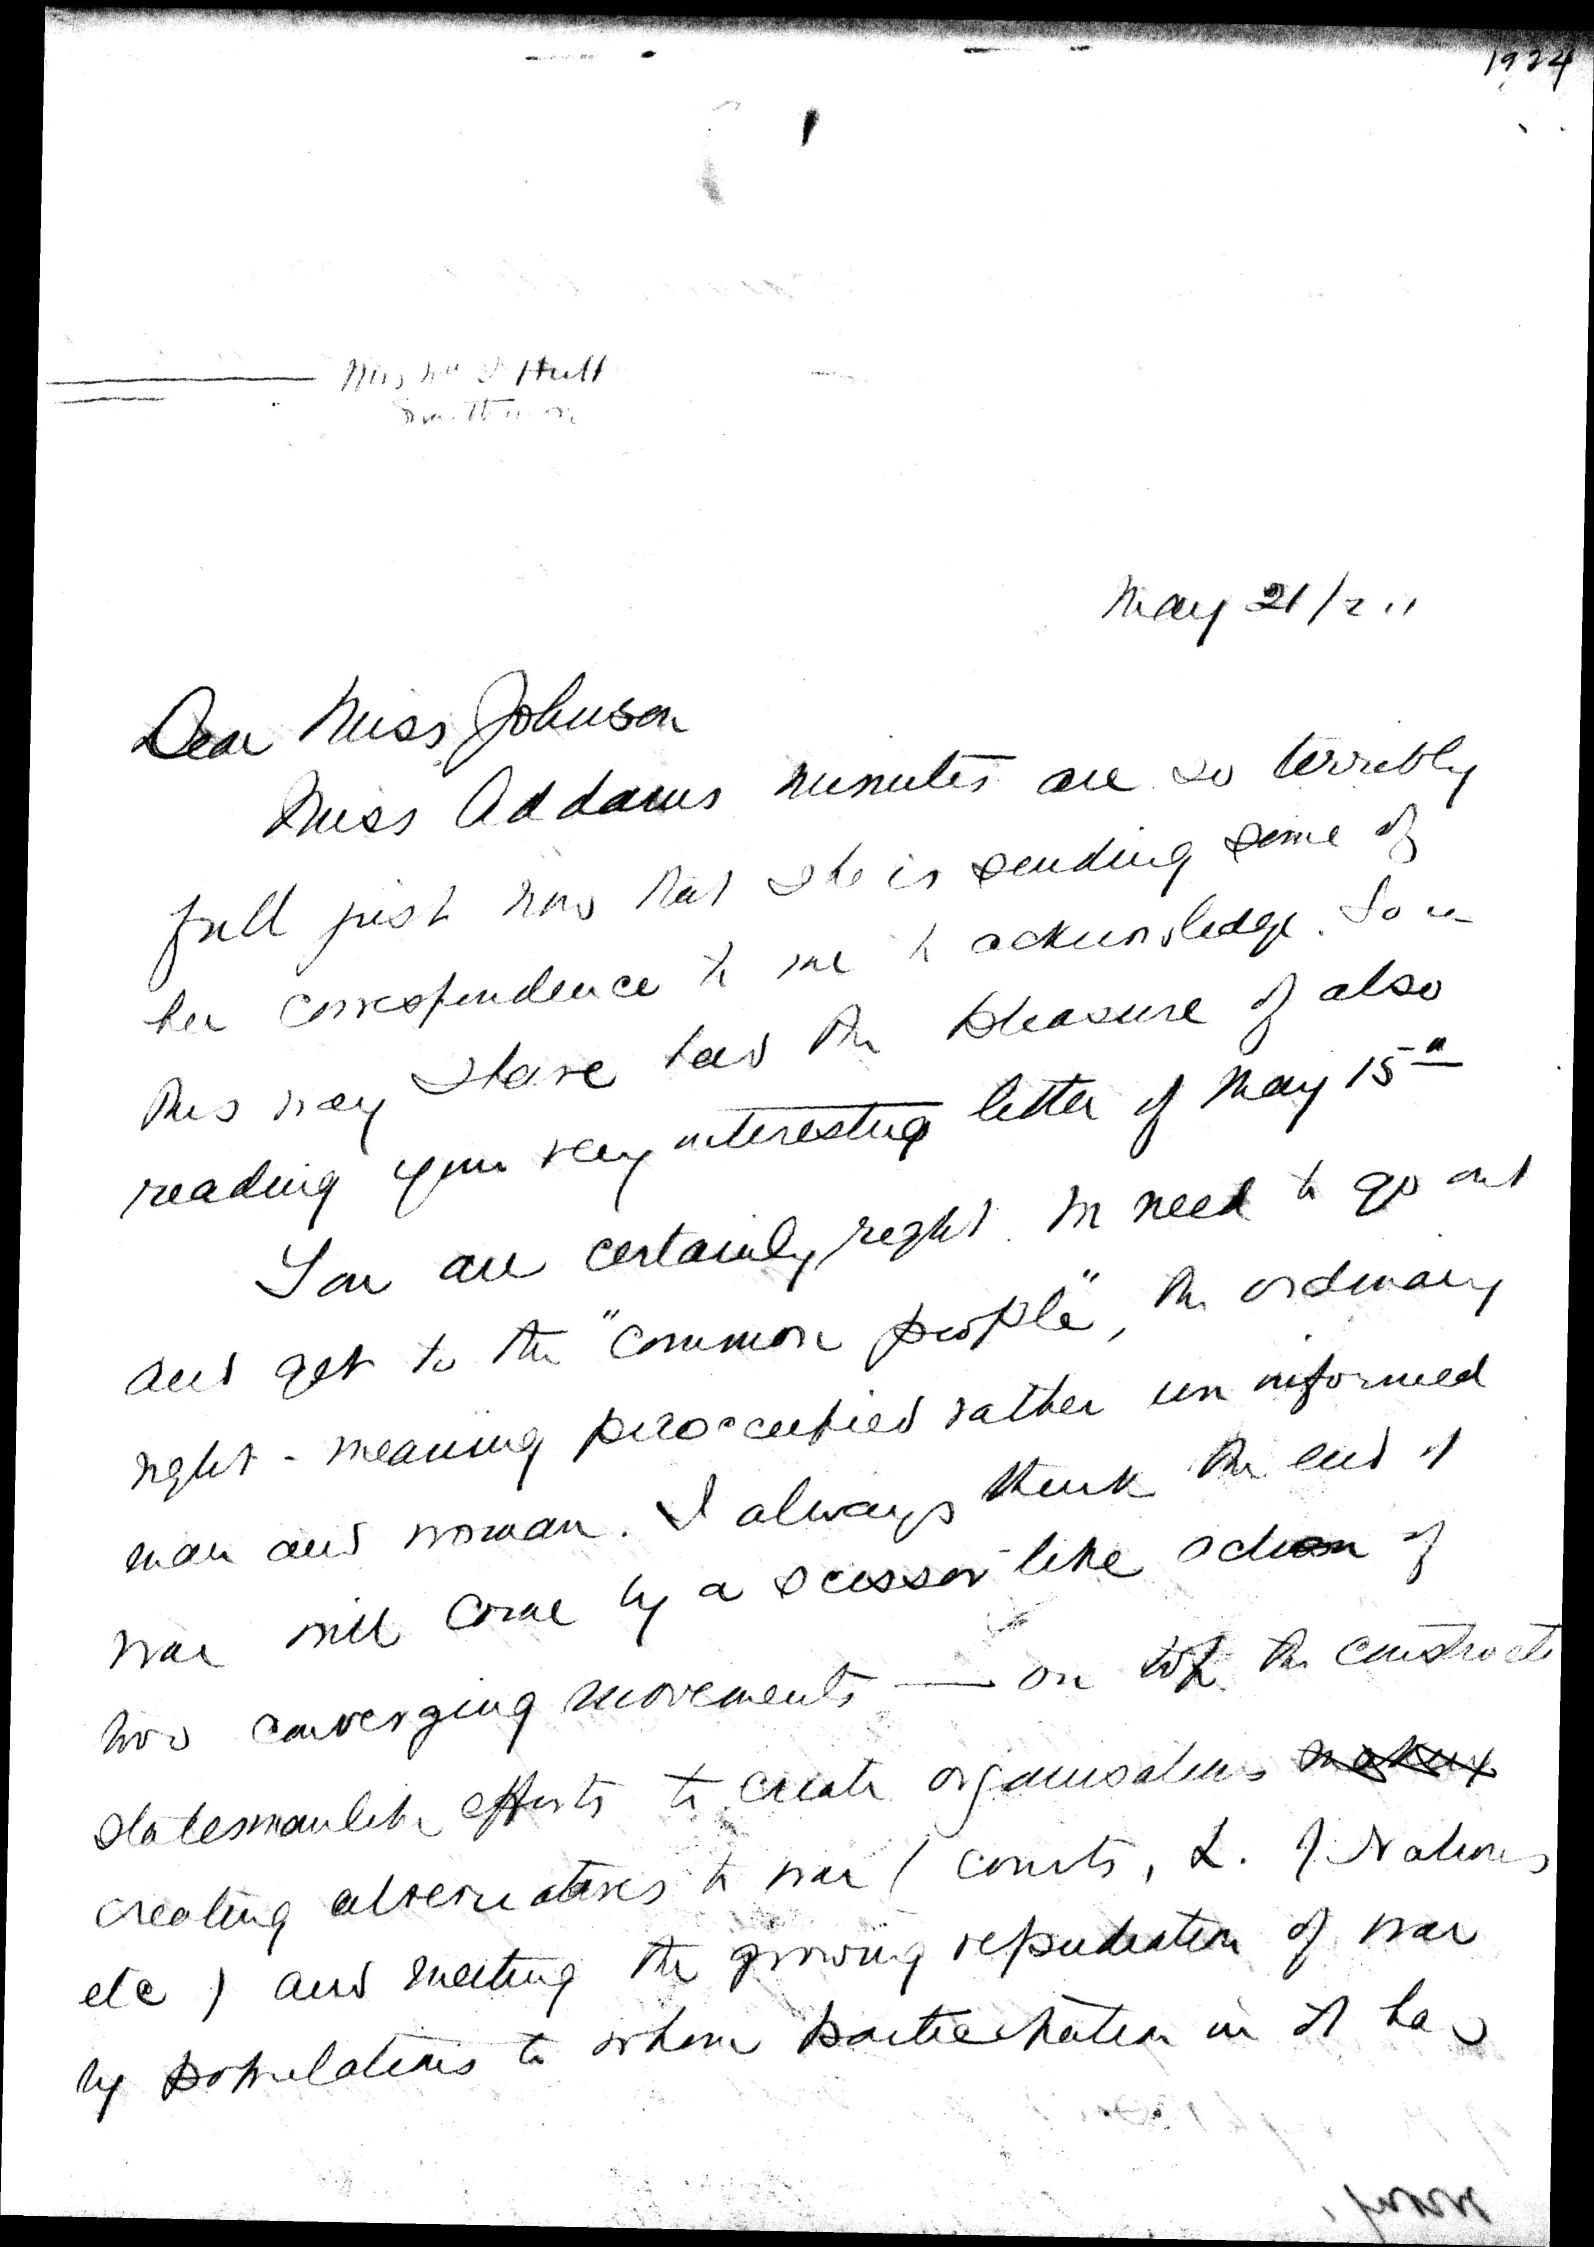 1924
Hull
May 21/
Dear Miss Johnson
Miss Addams minutes are so terribly
full just now that she is sending some of
her correspondence to me to acknowledge. So in
this way I have had the pleasure of also
reading your very interesting letter of May 15th
You are certainly right. We need to go out
and get to the "common people", the ordinary
right-meaning preoccupied rather uninformed
man and woman. I always think the end of
war will come by a scissor like action of
two converging movements — on top the constructive
statesmanlike efforts to create organisations
creating alternatives to war (courts, L. of Nations
etc) and meeting the growing repudiation of war
by populations to whom participation in it has